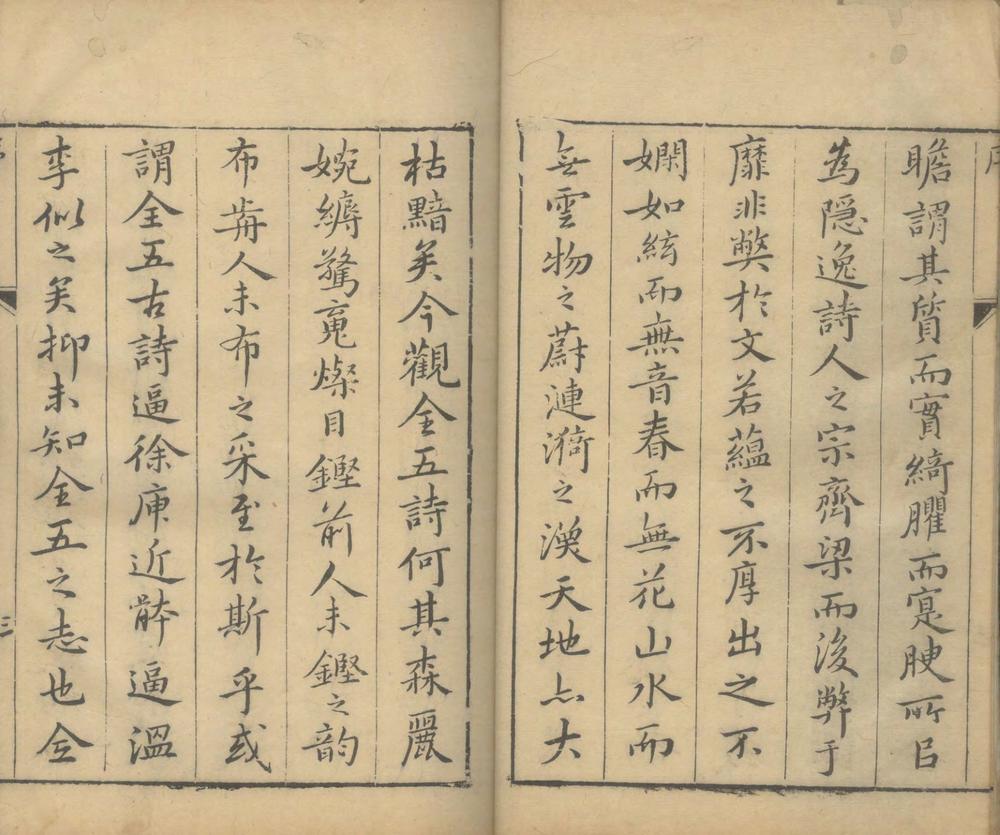 序
瞻謂其質而實綺臞而寔腴所㠯
為隱逸詩人之宗齊梁而後弊于
靡非獘於文若蘊之不厚出之不
嫻如絃而無音春而無花山水而
無雲物之蔚漣漪之渙天地亦大
枯黯矣今觀全五詩何其森麗
婉縟驚䰟燦目鏗前人未鏗之韵
布歬人未布之采至於斯乎或
謂全五古詩逼徐庾近體逼溫
李似之矣抑未知全五之志也全
三